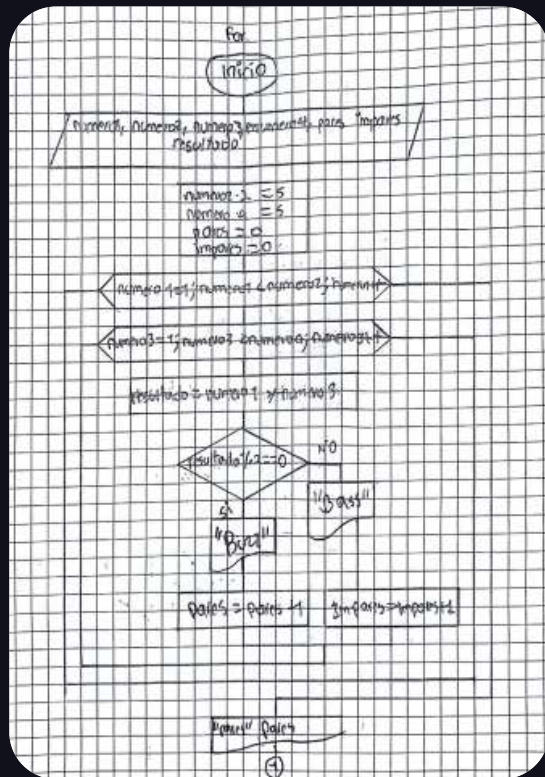 For
inicio
numero1, numero2, numero3, numero4, pares impares
resultado
numero2 = 5
numero4 = 5
pares = 0
impares = 0
numero1=1; numero1 < numero2; numero1++
numero3=1; numero3 < numero4; numero3++
resultado = numero1 * numero3
resultado%2==0
NO
"Bass"
si
"Bizz"
pares = pares +1
Impares=impares+1
"pares" pares
1